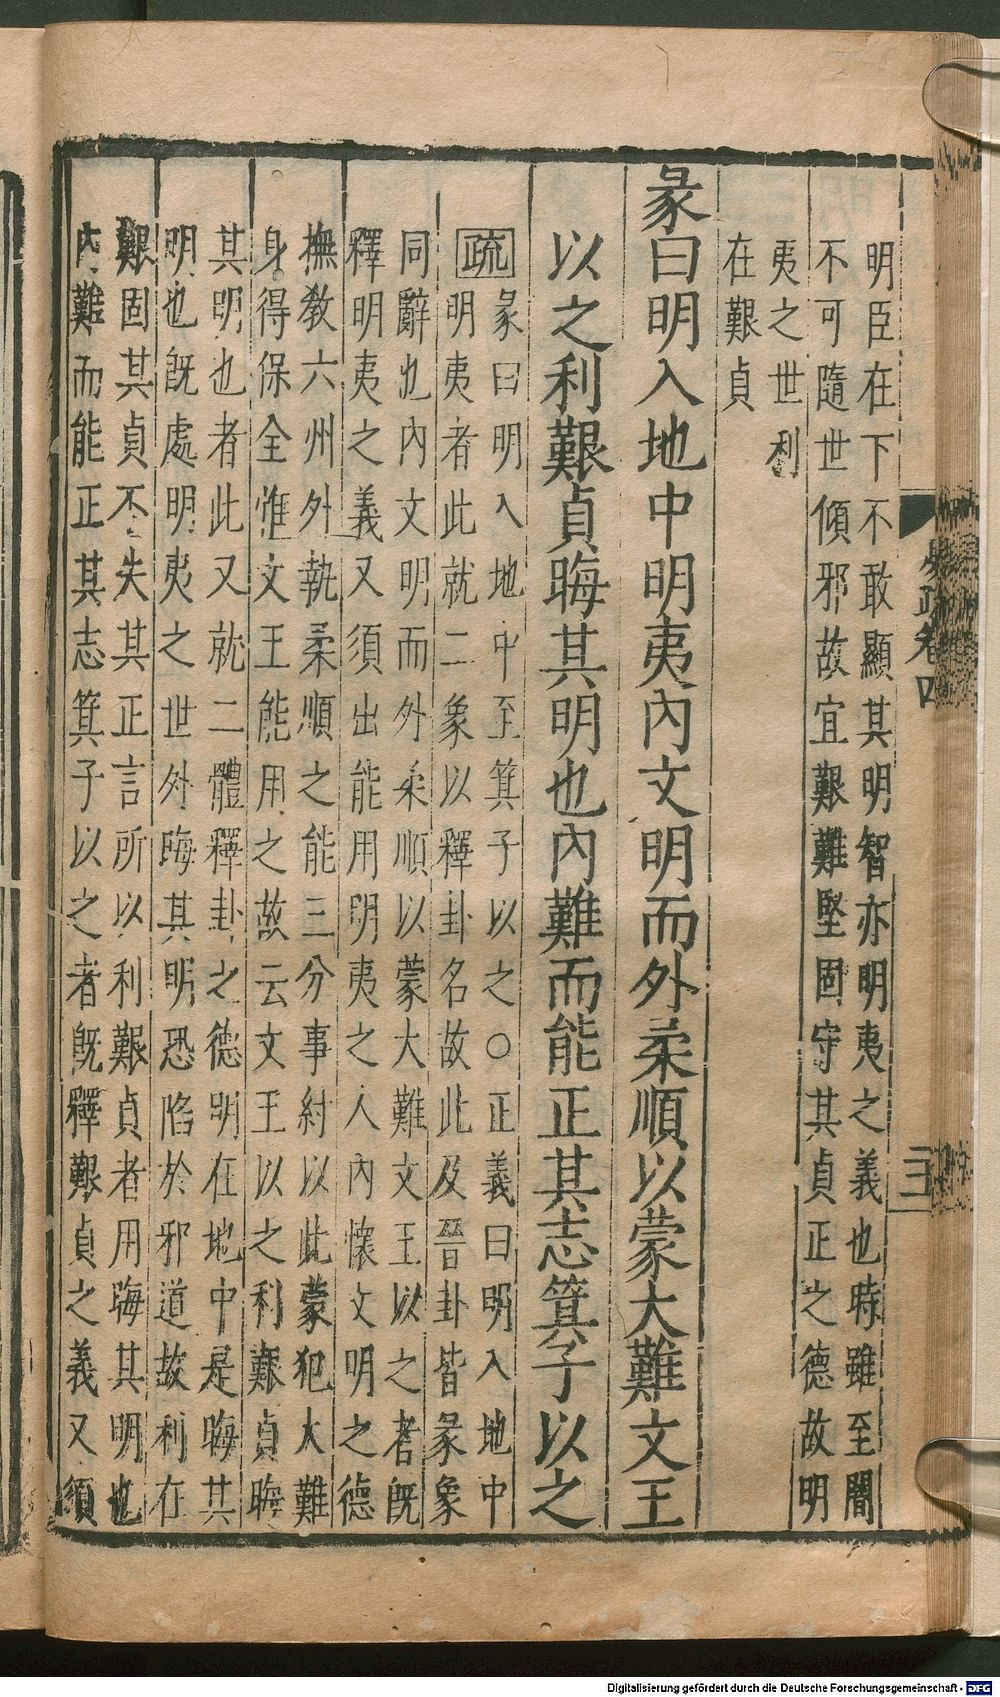 易疏卷四
三
明臣在下不敢顯其明智亦明夷之義也時雖至闇
不可隨世傾邪故宜艱難堅固守其貞正之德故明
夷之世利
在艱貞
彖曰明入地中明夷內文明而外柔順以蒙大難文王
以之利艱貞晦其明也內難而能正其志箕子以之
疏
彖曰明入地中至箕子以之○正義曰明入地中
明夷者此就二象以釋卦名故此及晉卦皆彖象
同辭也內文明而外柔順以蒙大難文王以之者旣
釋明夷之義又須出能用明夷之人內懷文明之德
撫敎六州外執柔順之能三分事紂以此蒙犯大難
身得保全惟文王能用之故云文王以之利艱貞晦
其明也者此又就二體釋卦之德明在地中是晦其
明也旣處明夷之世外晦其明恐陷於邪道故利在
艱固其貞不失其正言所以利艱貞者用晦其明也
內難而能正其志箕子以之者旣釋艱貞之義又須
Digitalisierung gefördert durch die Deutsche Forschungsgemeinschaft - DFG